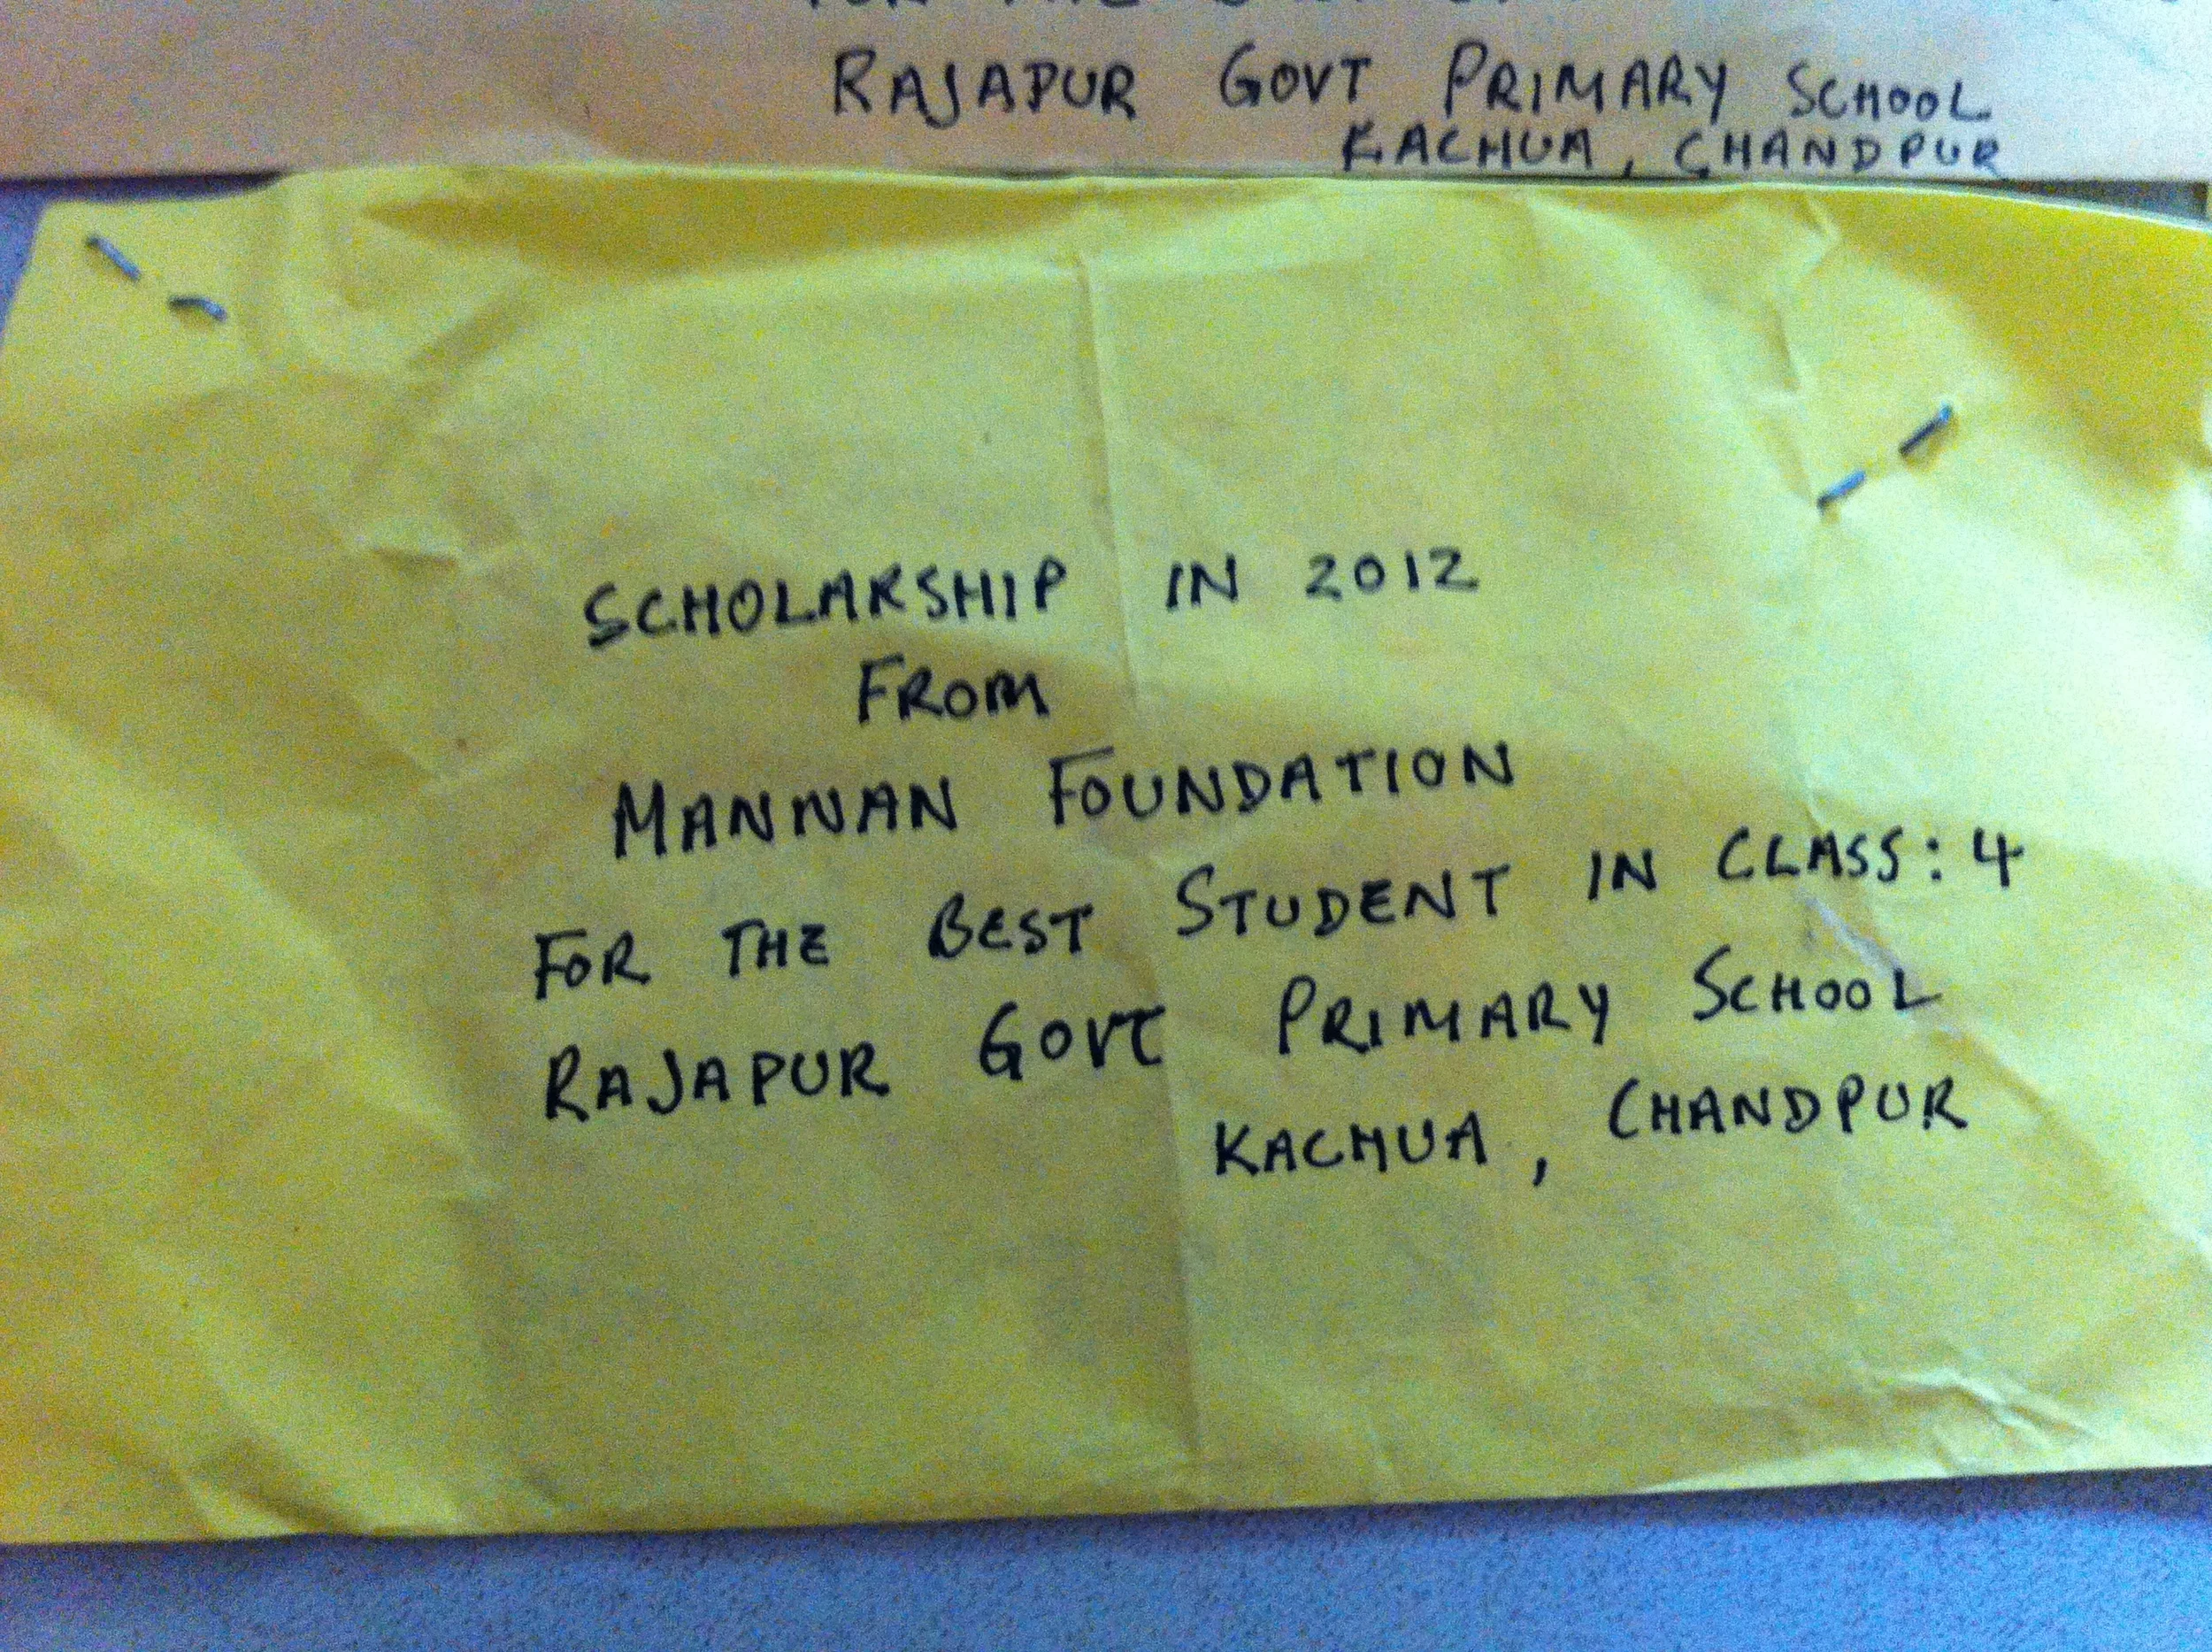 RAJAPUR GOVT PRIMARY SCHOOL
KACHUA, CHANDPUR
SCHOLARSHIP IN 2012
FROM
MANNAN FOUNDATION
FOR THE BEST STUDENT IN CLASS: 4
RAJAPUR GOVT PRIMARY SCHOOL
KACHUA, CHANDPUR